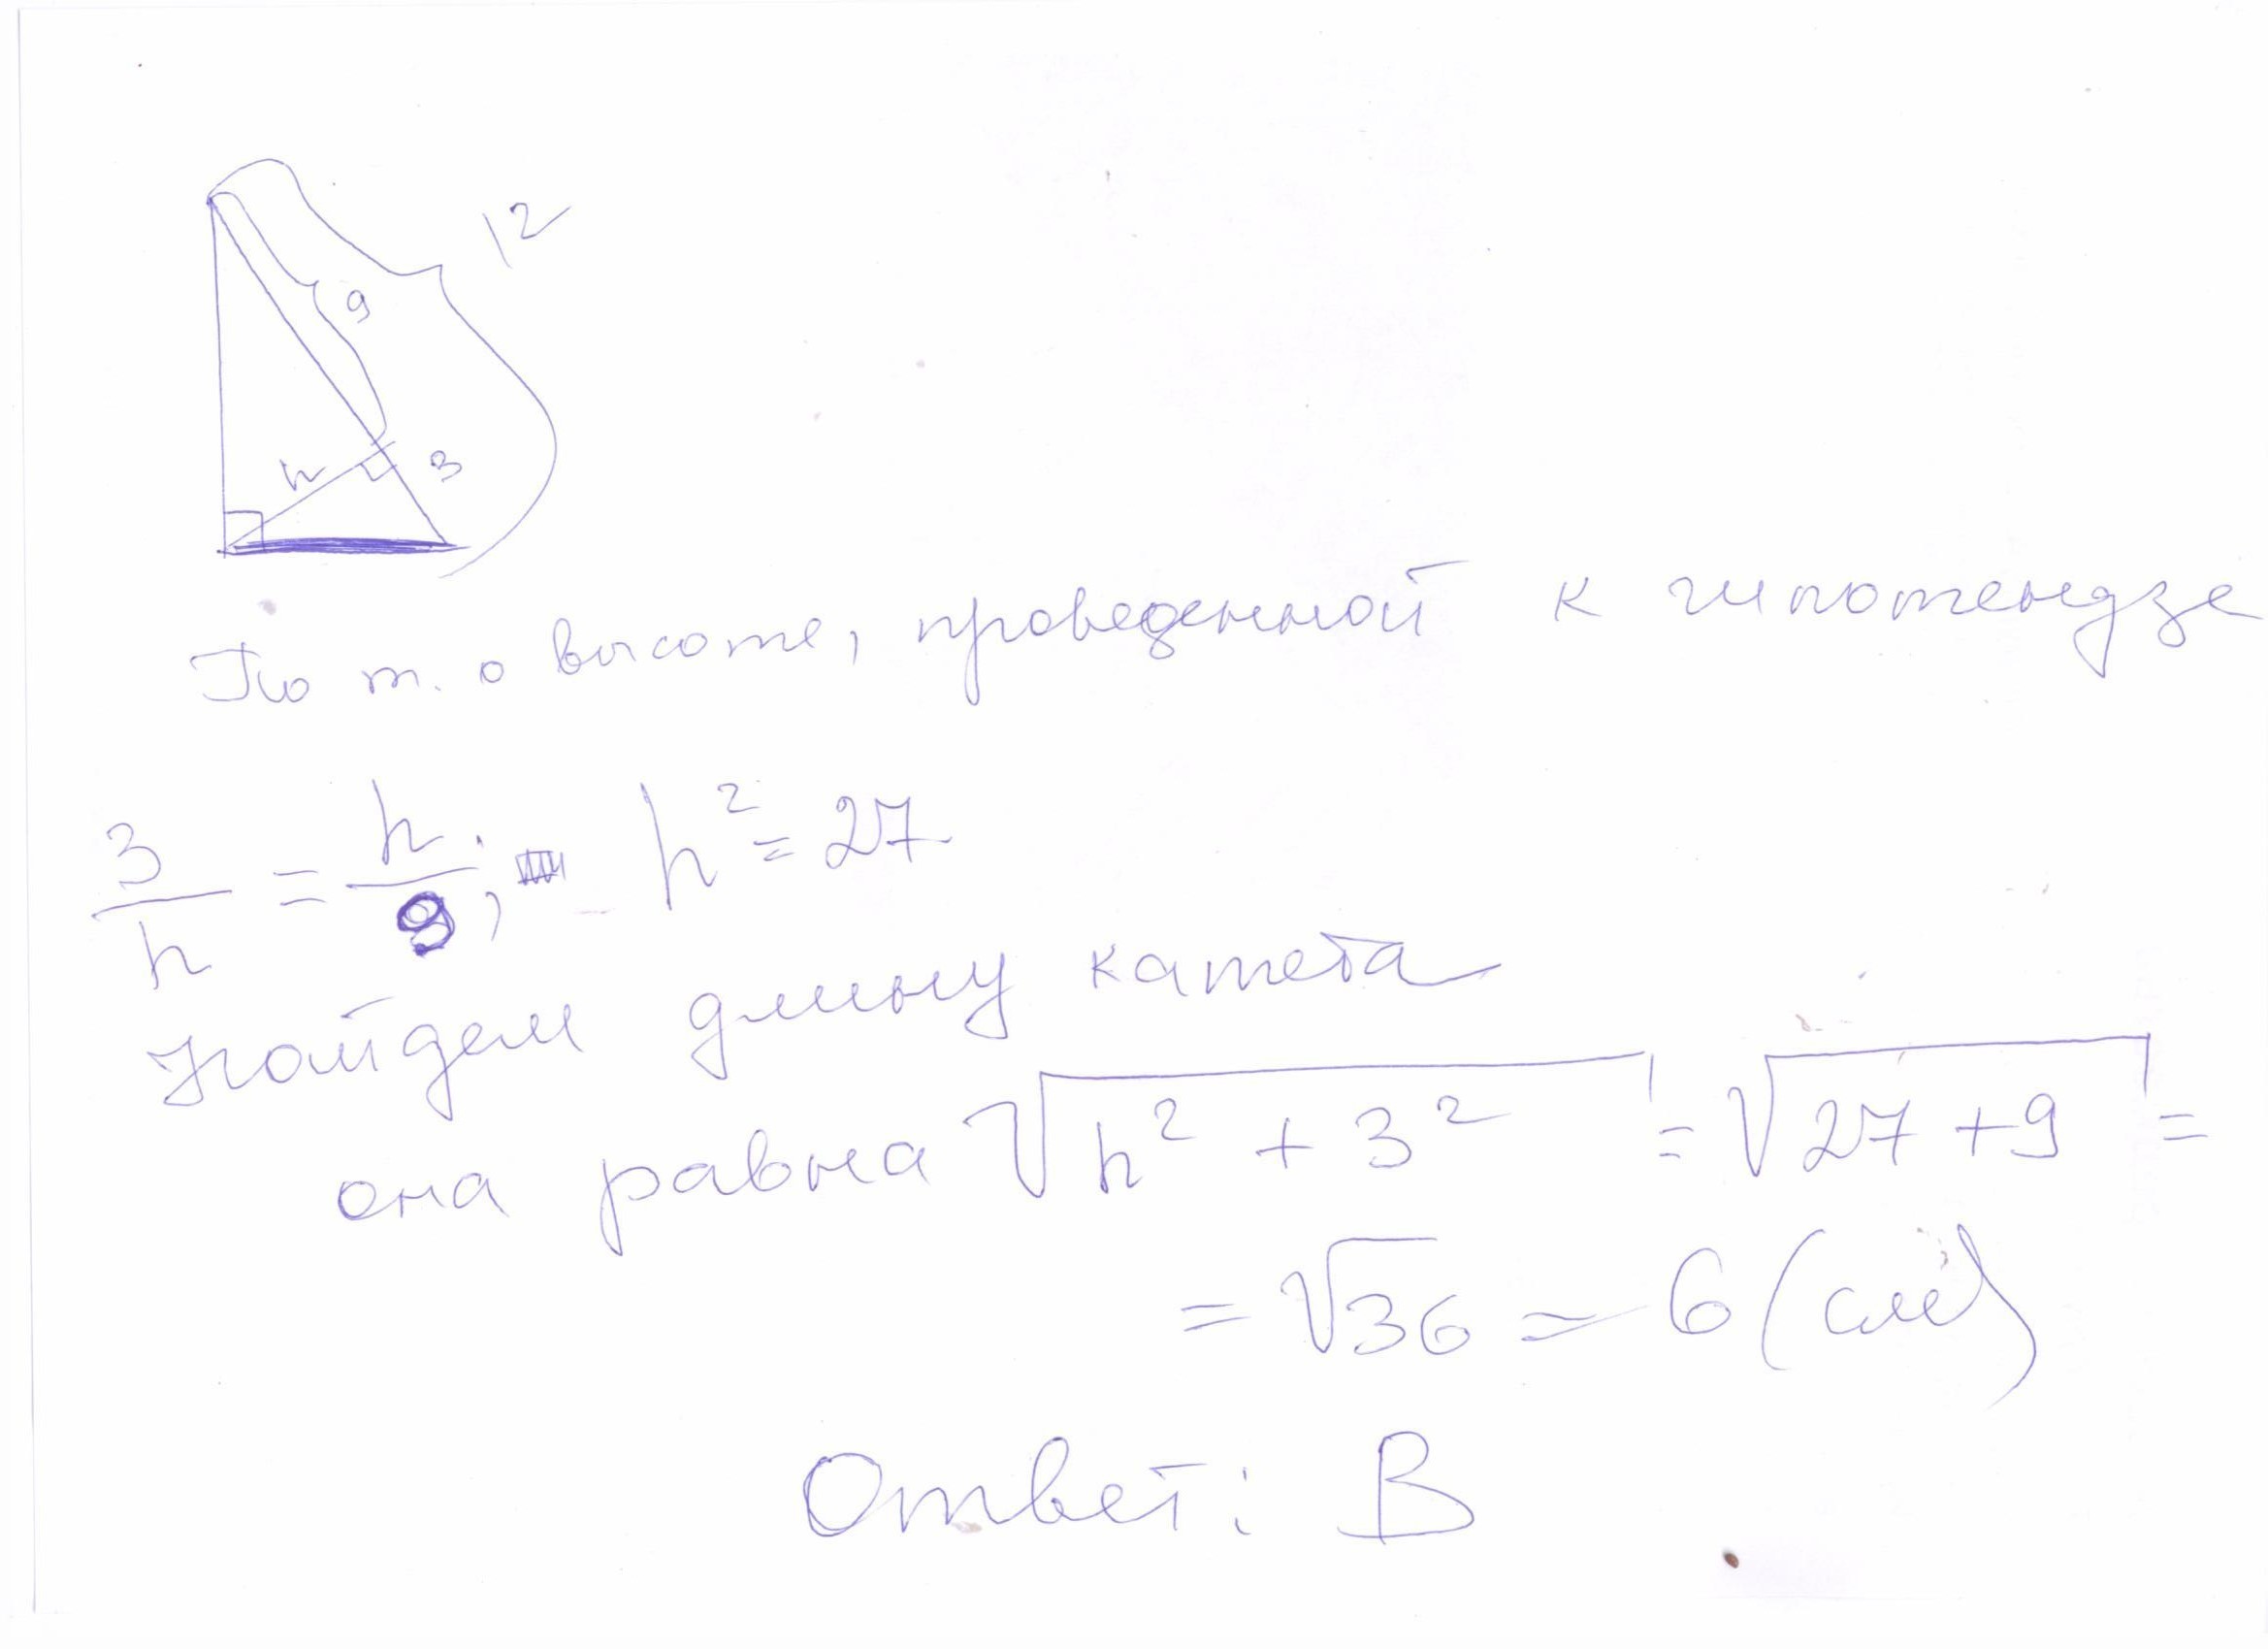 12
9
h
3
По т. о высоте, проведенной к гипотендзе
3/h = h/9; h² = 27
Найдем длину катета
она равна √(h² + 3²) = √(27 + 9) =
= √36 = 6 (см)
Ответ: В